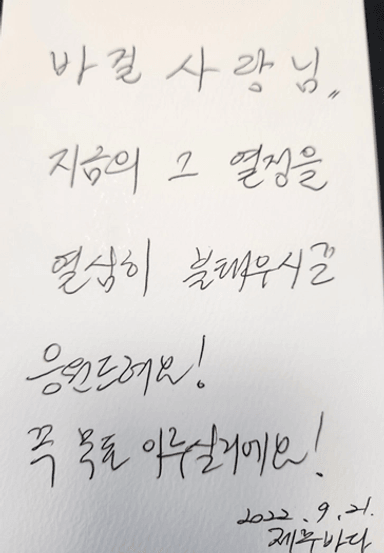 바질 사랑님〃
지금의 그 열정을
열심히 불태우시길
응원드려요!
꼭 목표 이루실거에요!
2022. 9. 21.
제주바다